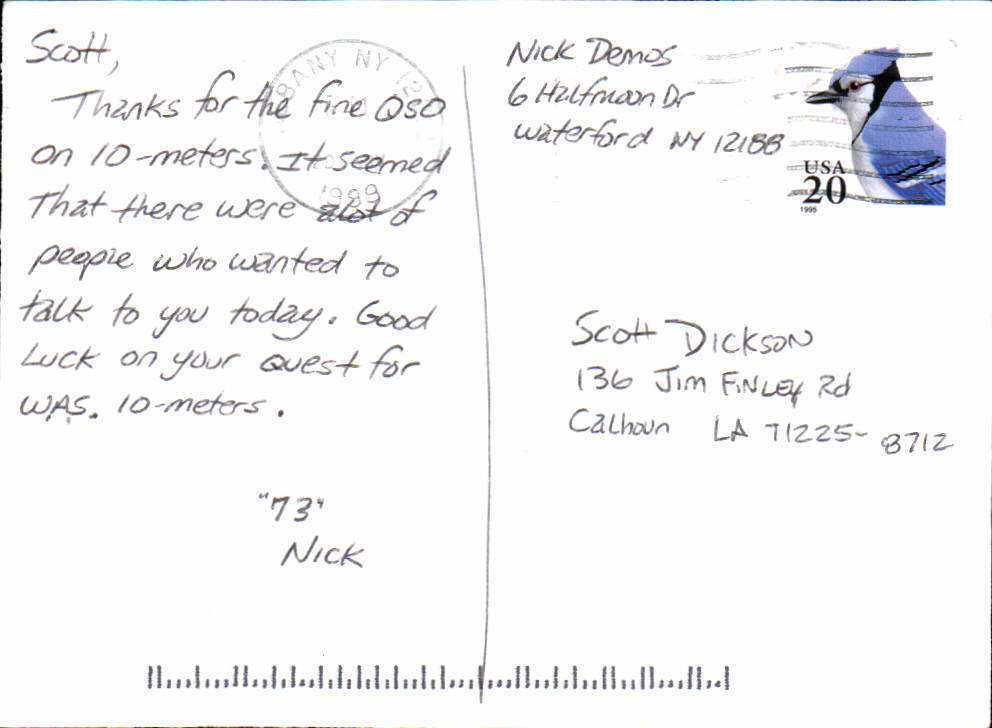 Scott,
Thanks for the fine QSO
on 10-meters. It seemed
That there were alot of
people who wanted to
talk to you today. Good
Luck on your quest for
W.A.S. 10-meters.
"73"
Nick
BANY NY 12
1999
Nick Demos
6 Halfmoon Dr
Waterford NY 12188
USA
20
1995
Scott Dickson
136 Jim Finley Rd
Calhoun LA 71225-8712